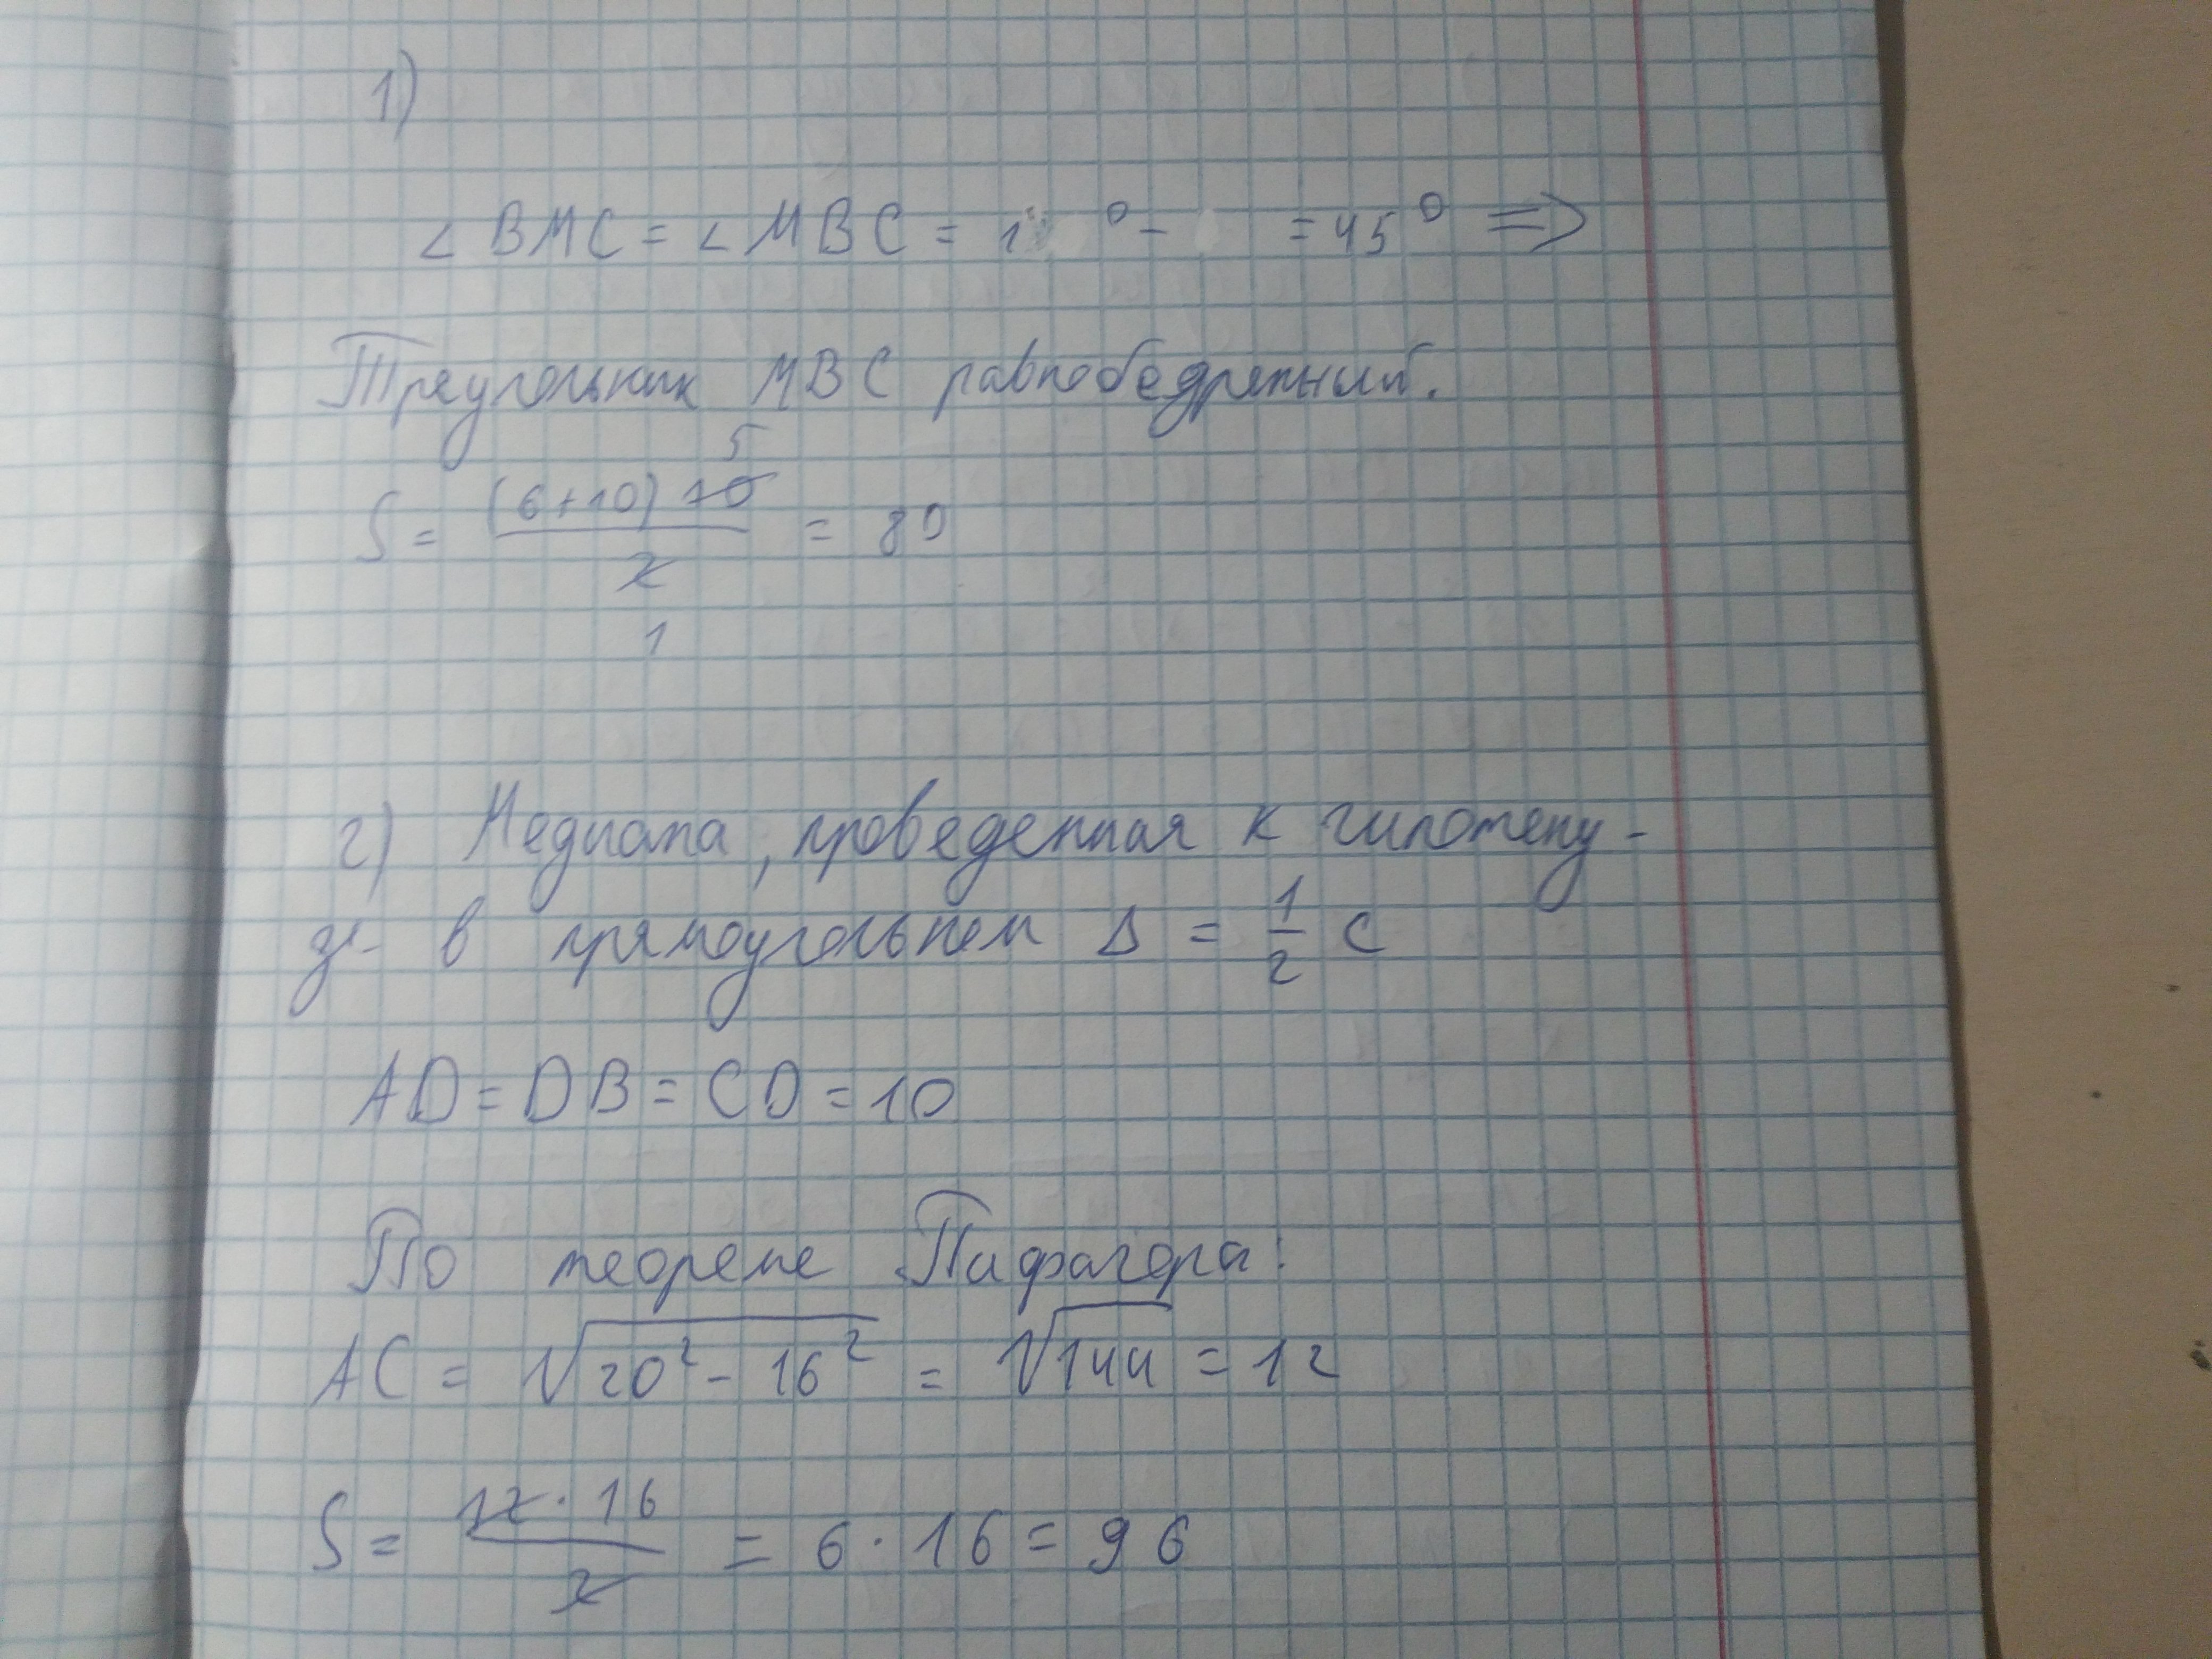 1)
∠ BMC = ∠ MBC = 1 ° - = 45° =>
Треугольник MBC равнобедренный.
S = (6+10) 10 / 2 = 80
5
1
2) Медиана, проведенная к гипотену-
зе в прямоугольном Δ = 1/2 c
AD = DB = CD = 10
По теореме Пифагора:
AC = √20² - 16² = √144 = 12
S = 12 · 16 / 2 = 6 · 16 = 96